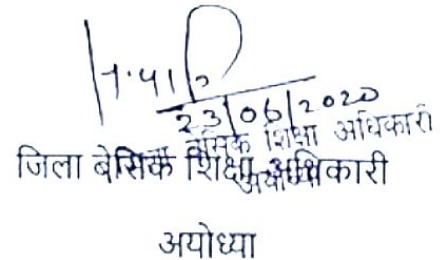 23/06/2020
बेसिक शिक्षा अधिकारी
जिला बेसिक शिक्षा अधिकारी
अयोध्या